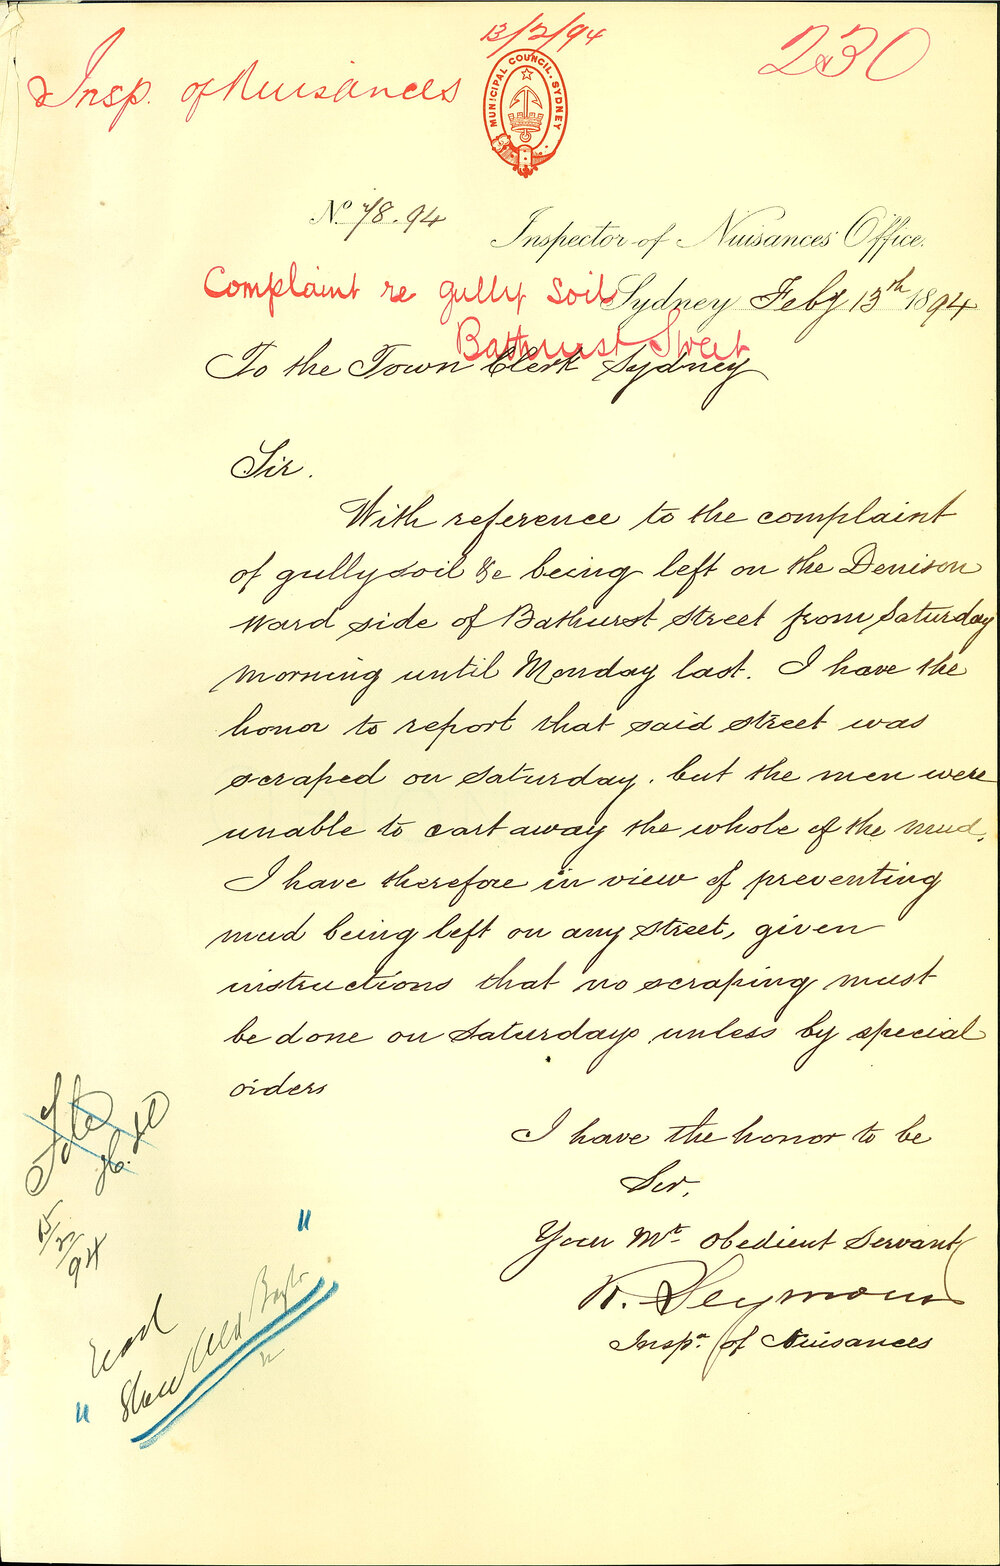 13/2/94
230
Insp. of Nuisances
MUNICIPAL COUNCIL, SYDNEY
No. 78.94
Inspector of Nuisances Office.
Complaint re gully soil
Bathurst Street
Sydney Feby 13th 1894
To the Town Clerk Sydney
Sir.
With reference to the complaint
of gully soil &c being left on the Denison
Ward side of Bathurst Street from Saturday
morning until Monday last. I have the
honor to report that said street was
scraped on Saturday. but the men were
unable to cart away the whole of the mud.
I have therefore in view of preventing
mud being left on any street, given
instructions that no scraping must
be done on Saturdays unless by special
orders
I have the honor to be
Sir,
Your Mt. Obedient Servant
R. Seymour
Inspr. of Nuisances
15/2/94
Show Ald